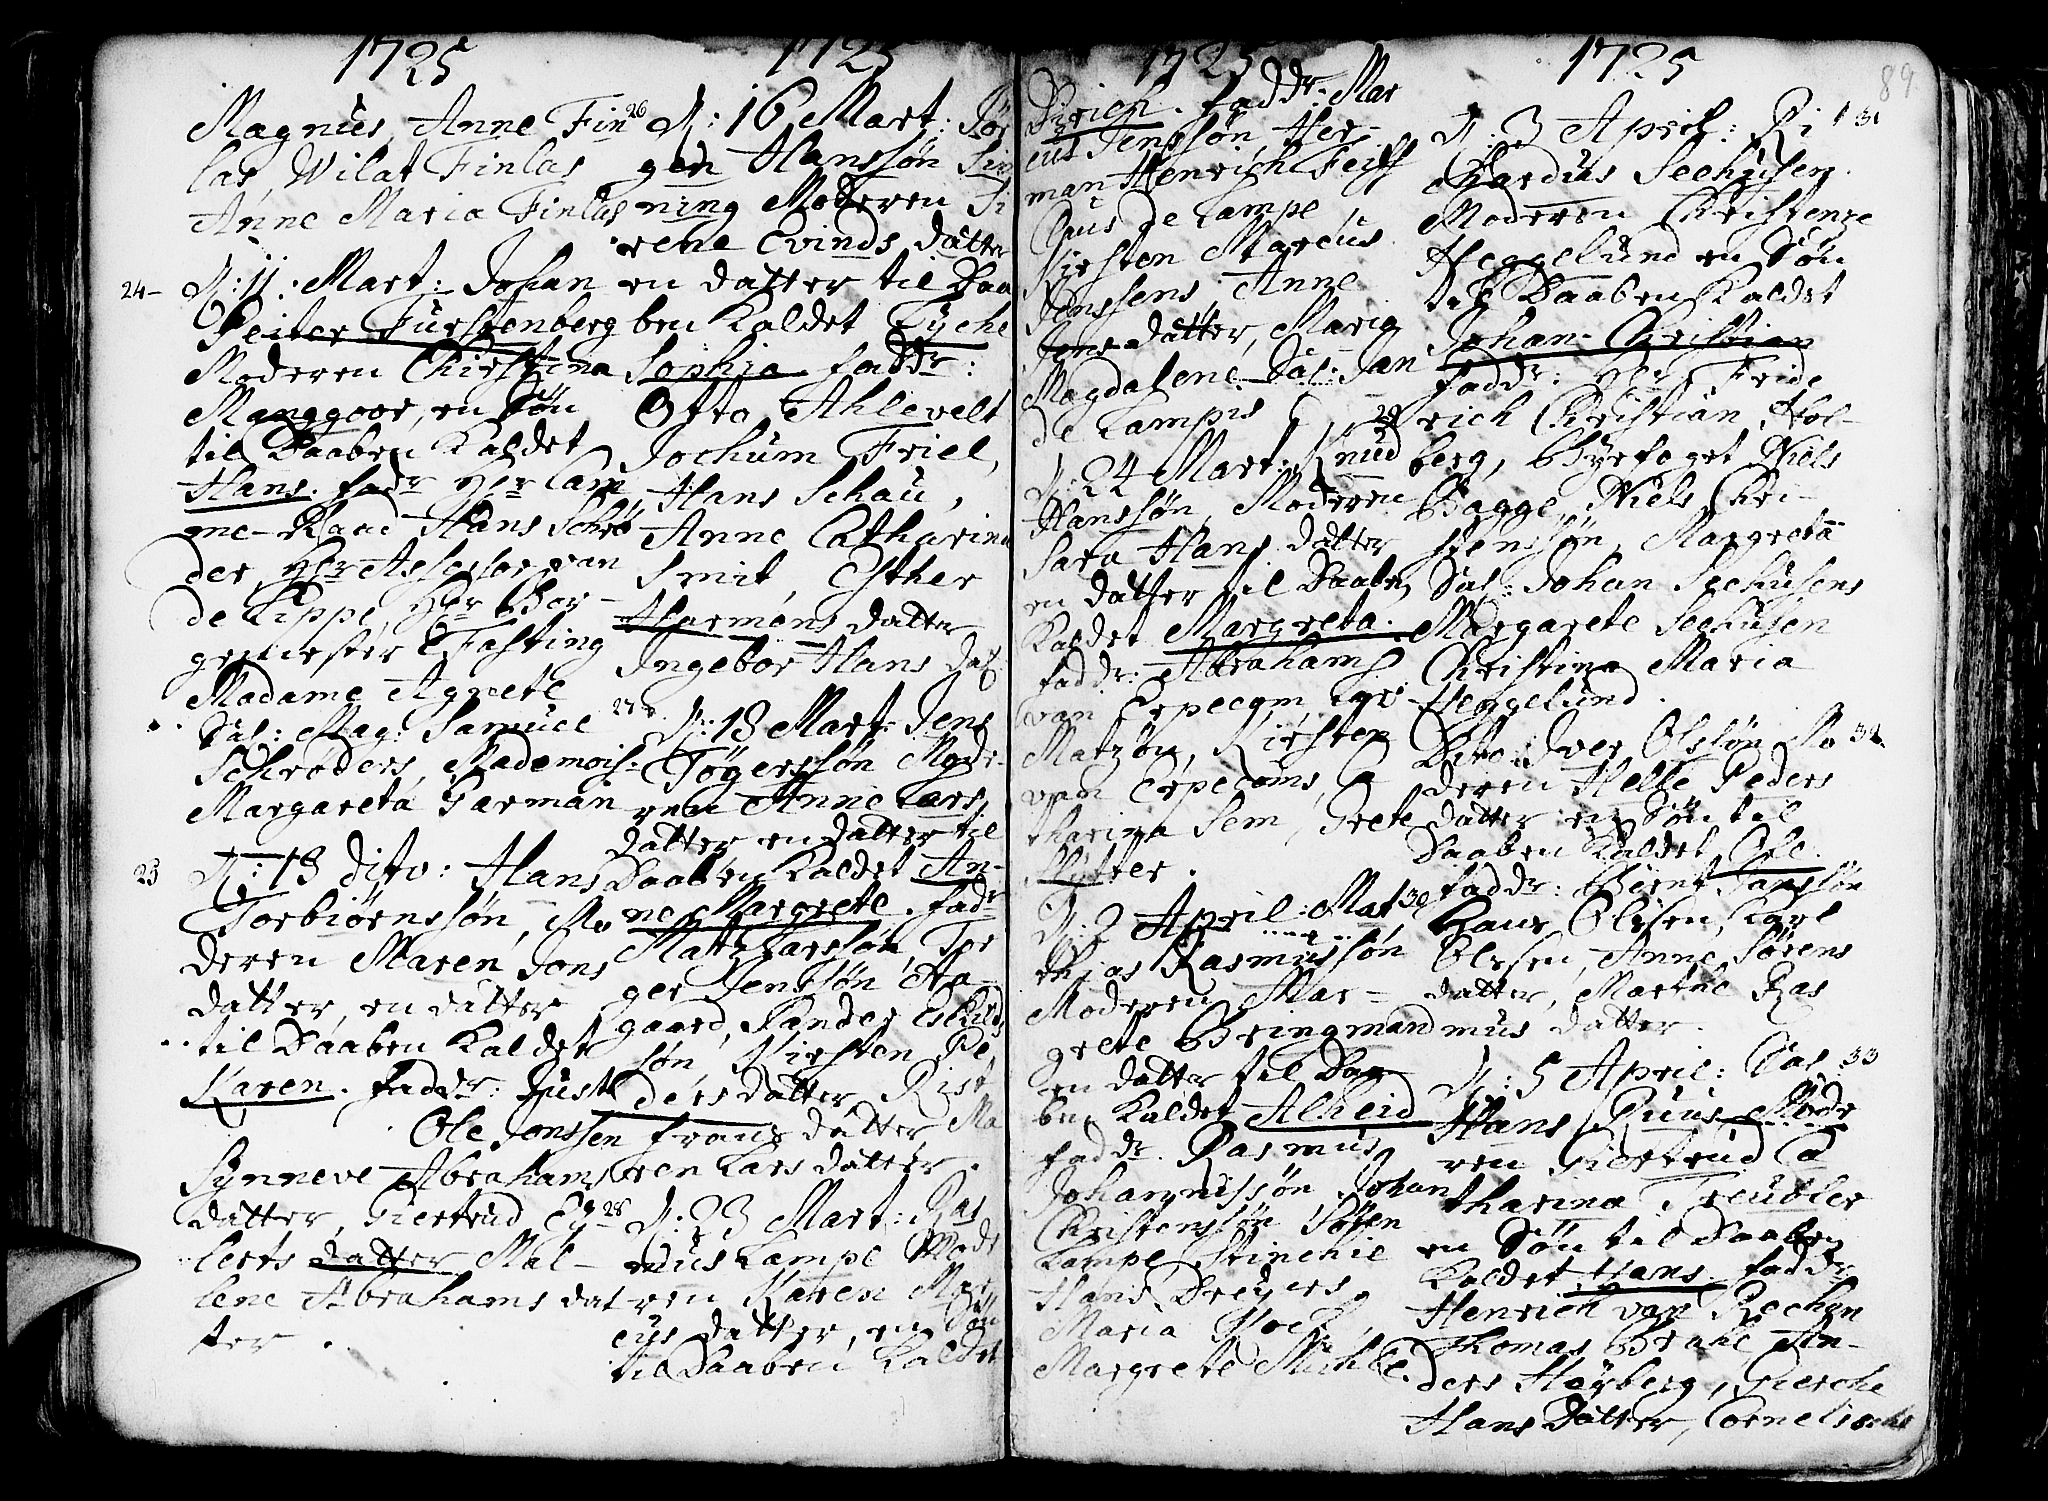 1725
Magnus, Anne Fin
las, Wilat Finlas
Anne Maria Finlas
24 - D: 11. Mart: Johan
Peiter Furstenberg
Moderen Christina
Manggoor, en Søn
til Daaben Kaldet
Hans. fadr Her Cam
me-Raad Hans Schrø
der, Her Assessor van
de Lippe, Her Bor-
germester Fasting
Madame Agnete
Sal: Mag: Samuel
Schrøders, Mademois:
Margareta Garman
25 D: 13 dito: Hans
Torbiørnssøn, Mo
deren Maren Jons
datter, en datter
til Daaben Kaldet
Karen. faddr: Just
Ole Jonssen
Synneve Abrahams
datter, Giertrud Ey
lerts datter Mal-
lene Abrahams dat
ter.
1725
26 D: 16 Mart: Jør
gen Hanssøn
ning Moderen Si
rene Evinds datter
en datter til Daa
ben Kaldet Tyche
Sophia faddr:
Otto Ahlevelt
Jochum Friel,
Hans Schau,
Anne Catharina
Smit, Esther
Harmens datter
Ingebor Hans dat
27 D: 18 Mart: Jens
Tøgerssøn Mode-
ren Anne Lars
datter en datter til
Daaben Kaldet An-
ne Margrete. fadr
Matz Larssøn, Tor
ger Jenssøn Aa-
gaard, Sander Eskilds
søn, Kirsten Pe
ders datter, Rist
frans datter Ma
ren Lars datter.
28 D: 23 Mart: Ras
mus Kampe Mode
ren Karen Mar
cus datter, en Søn
til Daaben Kaldet
1725
Dirich. faddr: Mar
cus Jenssøn, Her-
man Henrich Feiff
Claus de Lampe
Kirsten Marcus
Jenssens, Anne
Jens datter, Maria
Magdalene Sal: Jan
de Lampis
29 D: 24 Mart: Knud
Hanssøn, Moderen
Sara Hans datter
en datter til Daaben
Kaldet Margreta.
faddr: Abraham
van Erpecom,
Matzøn, Kirsten
van Erpecoms, Ca
tharina Sem, Grete
Mÿtter.
30 D: 2 April: Mat
thias Rasmussøn
Moderen Mar-
grete Bringmand
en datter til Daa-
ben Kaldet Alheid
faddr. Rasmus
Johannissøn Johan
Christenssøn Søfren
Kampe, Stinchie
Hans Dreyers,
Maria
Margrete Mühle.
1725
89
31 D: 3 April: Ri
chardus Seehusen.
Moderen Christenze
Heggelund en Søn
til Daaben Kaldet
Johan Christian
faddr: Her Fride
rich Christian Hol-
berg, Byefoget Niels
Bagge, Niels Chri-
stenssøn, Margreta
Sal: Johan Seehusens
Margarete Seehusen
Christina Maria
Heggelund.
32 Dito: Iver Olssøn Mo
deren Helle Peders
datter en Søn til
Daaben Kaldet Ole.
faddr: Bernt Janssøn
Hans Olssen, Karl
Olssen, Anne Sørens
datter, Marthe Ras
mus datter.
33 D: 5 April: Sal
Hans Ruus Mode
ren Giertrud Ca
tharina Treubler
en Søn til Daaben
Kaldet Hans. faddr
Henrich van Rechen
Thomas Brahe An-
ders Høyberg, Gierche
Hans datter, Cornelis